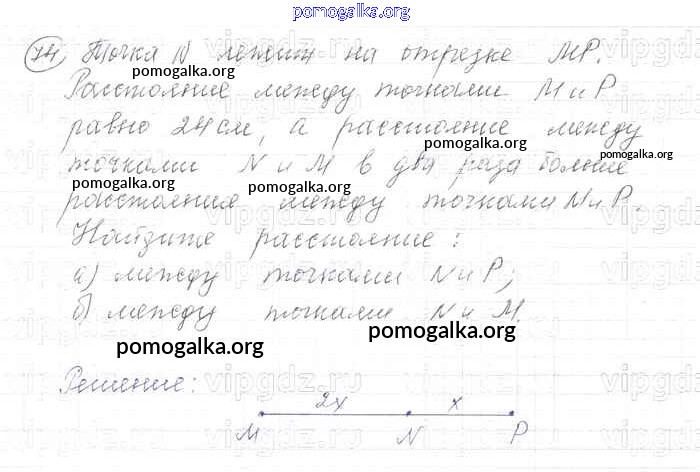 pomogalka.org
74 Точка N лежит на отрезке MP.
pomogalka.org
Расстояние между точками M и P
равно 24 см, а расстояние между
pomogalka.org pomogalka.org
точками N и M в два раза больше
pomogalka.org pomogalka.org
расстояния между точками N и P.
Найдите расстояние:
а) между точками N и P;
б) между точками N и M.
pomogalka.org pomogalka.org
Решение:
2x x
M N P